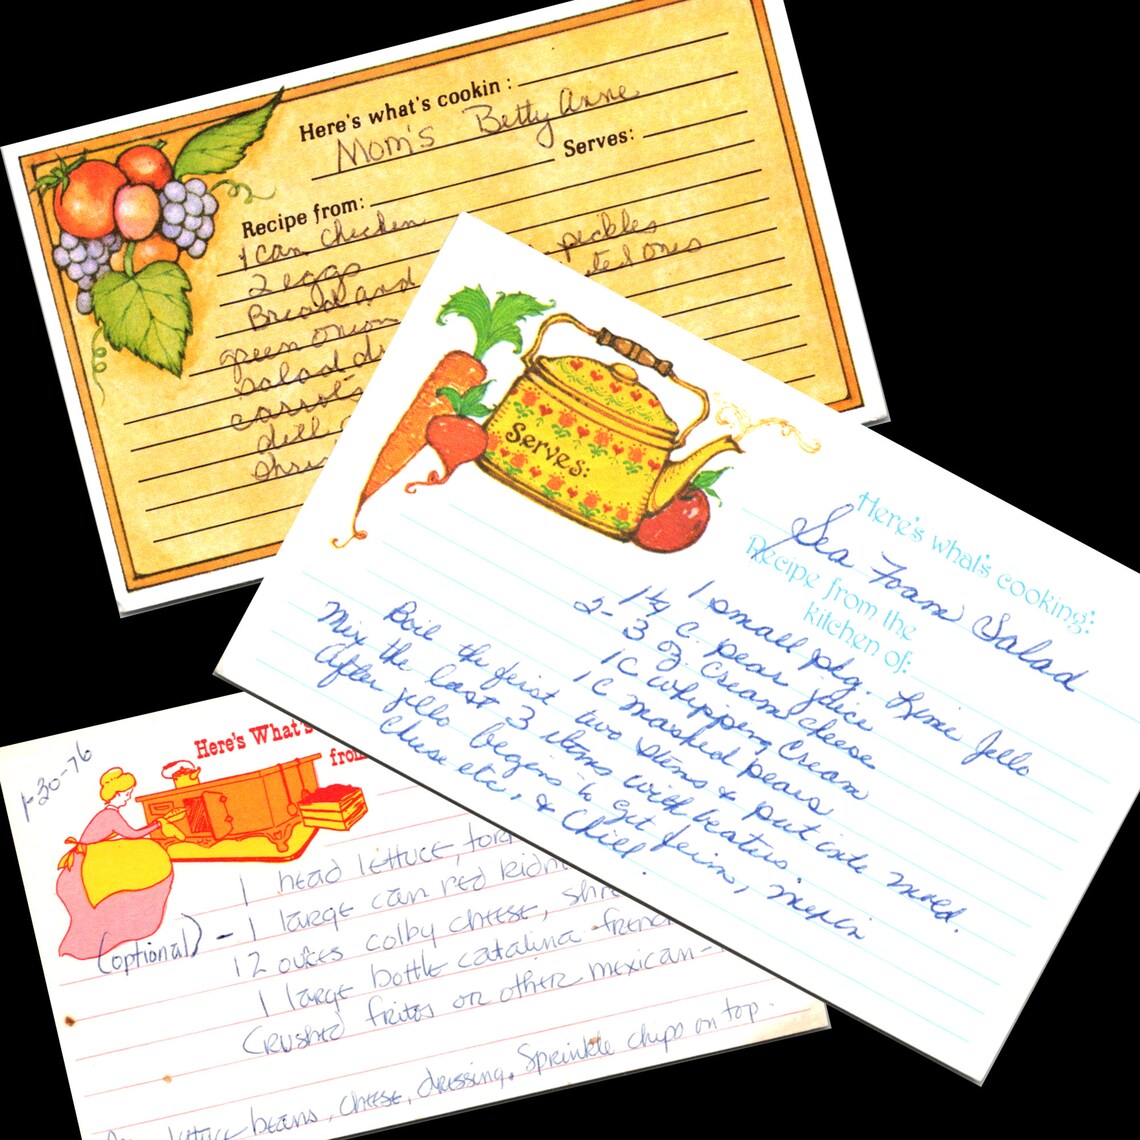 Here's what's cookin:
Mom's Betty Anne
Serves:
Recipe from:
1 can chicken
2 eggs
Bread and pickles
green onion ted ones
salad d
carrots
dill
Here's what's cooking:
Sea Foam Salad
Recipe from the
kitchen of:
Serves:
1 small pkg. Lime Jello
1 1/4 c. pear juice
2-3 oz. cream cheese
1 C whipping cream
1 C mashed pears
Boil the first two items & put into mold.
Mix the last 3 items with beaters
After jello begins to get firm, mix in
cheese etc. & chill.
1-30-76
Here's What's
from
1 head lettuce, torn
(optional) - 1 large can red kidn
12 ounces colby cheese, shre
1 large bottle catalina frenc
Crushed fritos or other mexican-
lettuce beans, cheese, dressing. Sprinkle chips on top.